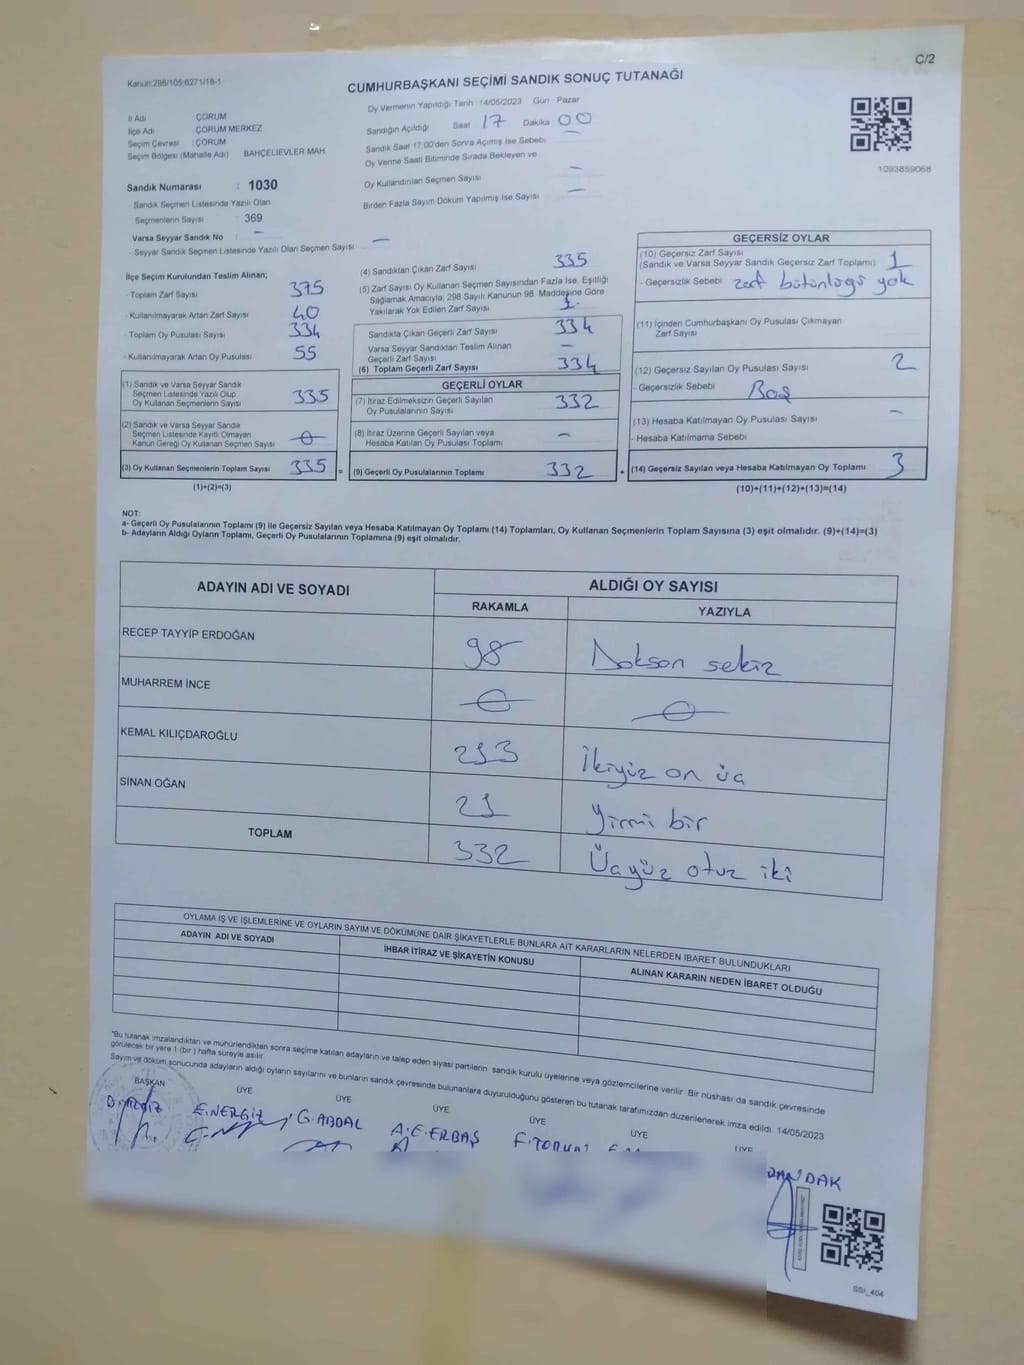 C/2
Kanun:298/105,6271/18-1
CUMHURBAŞKANI SEÇİMİ SANDIK SONUÇ TUTANAĞI
Oy Vermenin Yapıldığı Tarih : 14/05/2023 Gün : Pazar
İl Adı ÇORUM
İlçe Adı ÇORUM MERKEZ
Seçim Çevresi : ÇORUM
Seçim Bölgesi (Mahalle Adı) BAHÇELİEVLER MAH.
Sandığın Açıldığı Saat 17 Dakika 00
Sandık Saat 17:00'den Sonra Açılmış İse Sebebi
Oy Verme Saati Bitiminde Sırada Bekleyen ve
Oy Kullandırılan Seçmen Sayısı —
Birden Fazla Sayım Döküm Yapılmış İse Sayısı —
1093859068
Sandık Numarası : 1030
- Sandık Seçmen Listesinde Yazılı Olan
Seçmenlerin Sayısı : 369
Varsa Seyyar Sandık No : —
- Seyyar Sandık Seçmen Listesinde Yazılı Olan Seçmen Sayısı : —
İlçe Seçim Kurulundan Teslim Alınan;
- Toplam Zarf Sayısı 375
- Kullanılmayarak Artan Zarf Sayısı 40
- Toplam Oy Pusulası Sayısı 334
- Kullanılmayarak Artan Oy Pusulası 55
(1) Sandık ve Varsa Seyyar Sandık
Seçmen Listesinde Yazılı Olup
Oy Kullanan Seçmenlerin Sayısı 335
(2) Sandık ve Varsa Seyyar Sandık
Seçmen Listesinde Kayıtlı Olmayan
Kanun Gereği Oy Kullanan Seçmen Sayısı 0
(3) Oy Kullanan Seçmenlerin Toplam Sayısı 335 =
(1)+(2)=(3)
(4) Sandıktan Çıkan Zarf Sayısı 335
(5) Zarf Sayısı Oy Kullanan Seçmen Sayısından Fazla İse, Eşitliği
Sağlamak Amacıyla; 298 Sayılı Kanunun 98. Maddesine Göre
Yakılarak Yok Edilen Zarf Sayısı 1
Sandıkta Çıkan Geçerli Zarf Sayısı 334
Varsa Seyyar Sandıktan Teslim Alınan
Geçerli Zarf Sayısı —
(6) Toplam Geçerli Zarf Sayısı 334
GEÇERLİ OYLAR
(7) İtiraz Edilmeksizin Geçerli Sayılan
Oy Pusulalarının Sayısı 332
(8) İtiraz Üzerine Geçerli Sayılan veya
Hesaba Katılan Oy Pusulası Toplamı —
(9) Geçerli Oy Pusulalarının Toplamı 332 +
GEÇERSİZ OYLAR
(10) Geçersiz Zarf Sayısı
(Sandık ve Varsa Seyyar Sandık Geçersiz Zarf Toplamı) 1
- Geçersizlik Sebebi zarf bütünlüğü yok
(11) İçinden Cumhurbaşkanı Oy Pusulası Çıkmayan
Zarf Sayısı
(12) Geçersiz Sayılan Oy Pusulası Sayısı 2
- Geçersizlik Sebebi Boş
(13) Hesaba Katılmayan Oy Pusulası Sayısı —
- Hesaba Katılmama Sebebi
(14) Geçersiz Sayılan veya Hesaba Katılmayan Oy Toplamı 3
(10)+(11)+(12)+(13)=(14)
NOT:
a- Geçerli Oy Pusulalarının Toplamı (9) ile Geçersiz Sayılan veya Hesaba Katılmayan Oy Toplamı (14) Toplamları, Oy Kullanan Seçmenlerin Toplam Sayısına (3) eşit olmalıdır. (9)+(14)=(3)
b- Adayların Aldığı Oyların Toplamı, Geçerli Oy Pusulalarının Toplamına (9) eşit olmalıdır.
ADAYIN ADI VE SOYADI ALDIĞI OY SAYISI
RAKAMLA YAZIYLA
RECEP TAYYİP ERDOĞAN 98 Doksan sekiz
MUHARREM İNCE 0 0
KEMAL KILIÇDAROĞLU 213 İkiyüz on üç
SİNAN OĞAN 21 Yirmi bir
TOPLAM 332 Üçyüz otuz iki
OYLAMA İŞ VE İŞLEMLERİNE VE OYLARIN SAYIM VE DÖKÜMÜNE DAİR ŞİKAYETLERLE BUNLARA AİT KARARLARIN NELERDEN İBARET BULUNDUKLARI
ADAYIN ADI VE SOYADI İHBAR İTİRAZ VE ŞİKAYETİN KONUSU ALINAN KARARIN NEDEN İBARET OLDUĞU
*Bu tutanak imzalandıktan ve mühürlendikten sonra seçime katılan adayların ve talep eden siyasi partilerin sandık kurulu üyelerine veya gözlemcilerine verilir. Bir nüshası da sandık çevresinde
görülecek bir yere 1 (bir) hafta süreyle asılır.
Sayım ve döküm sonucunda adayların aldığı oyların sayılarını ve bunların sandık çevresinde bulunanlara duyurulduğunu gösteren bu tutanak tarafımızdan düzenlenerek imza edildi. 14/05/2023
BAŞKAN ÜYE ÜYE ÜYE ÜYE ÜYE ÜYE
E.NERGİZ G.ABDAL A.E.ERBAŞ
SSI_404